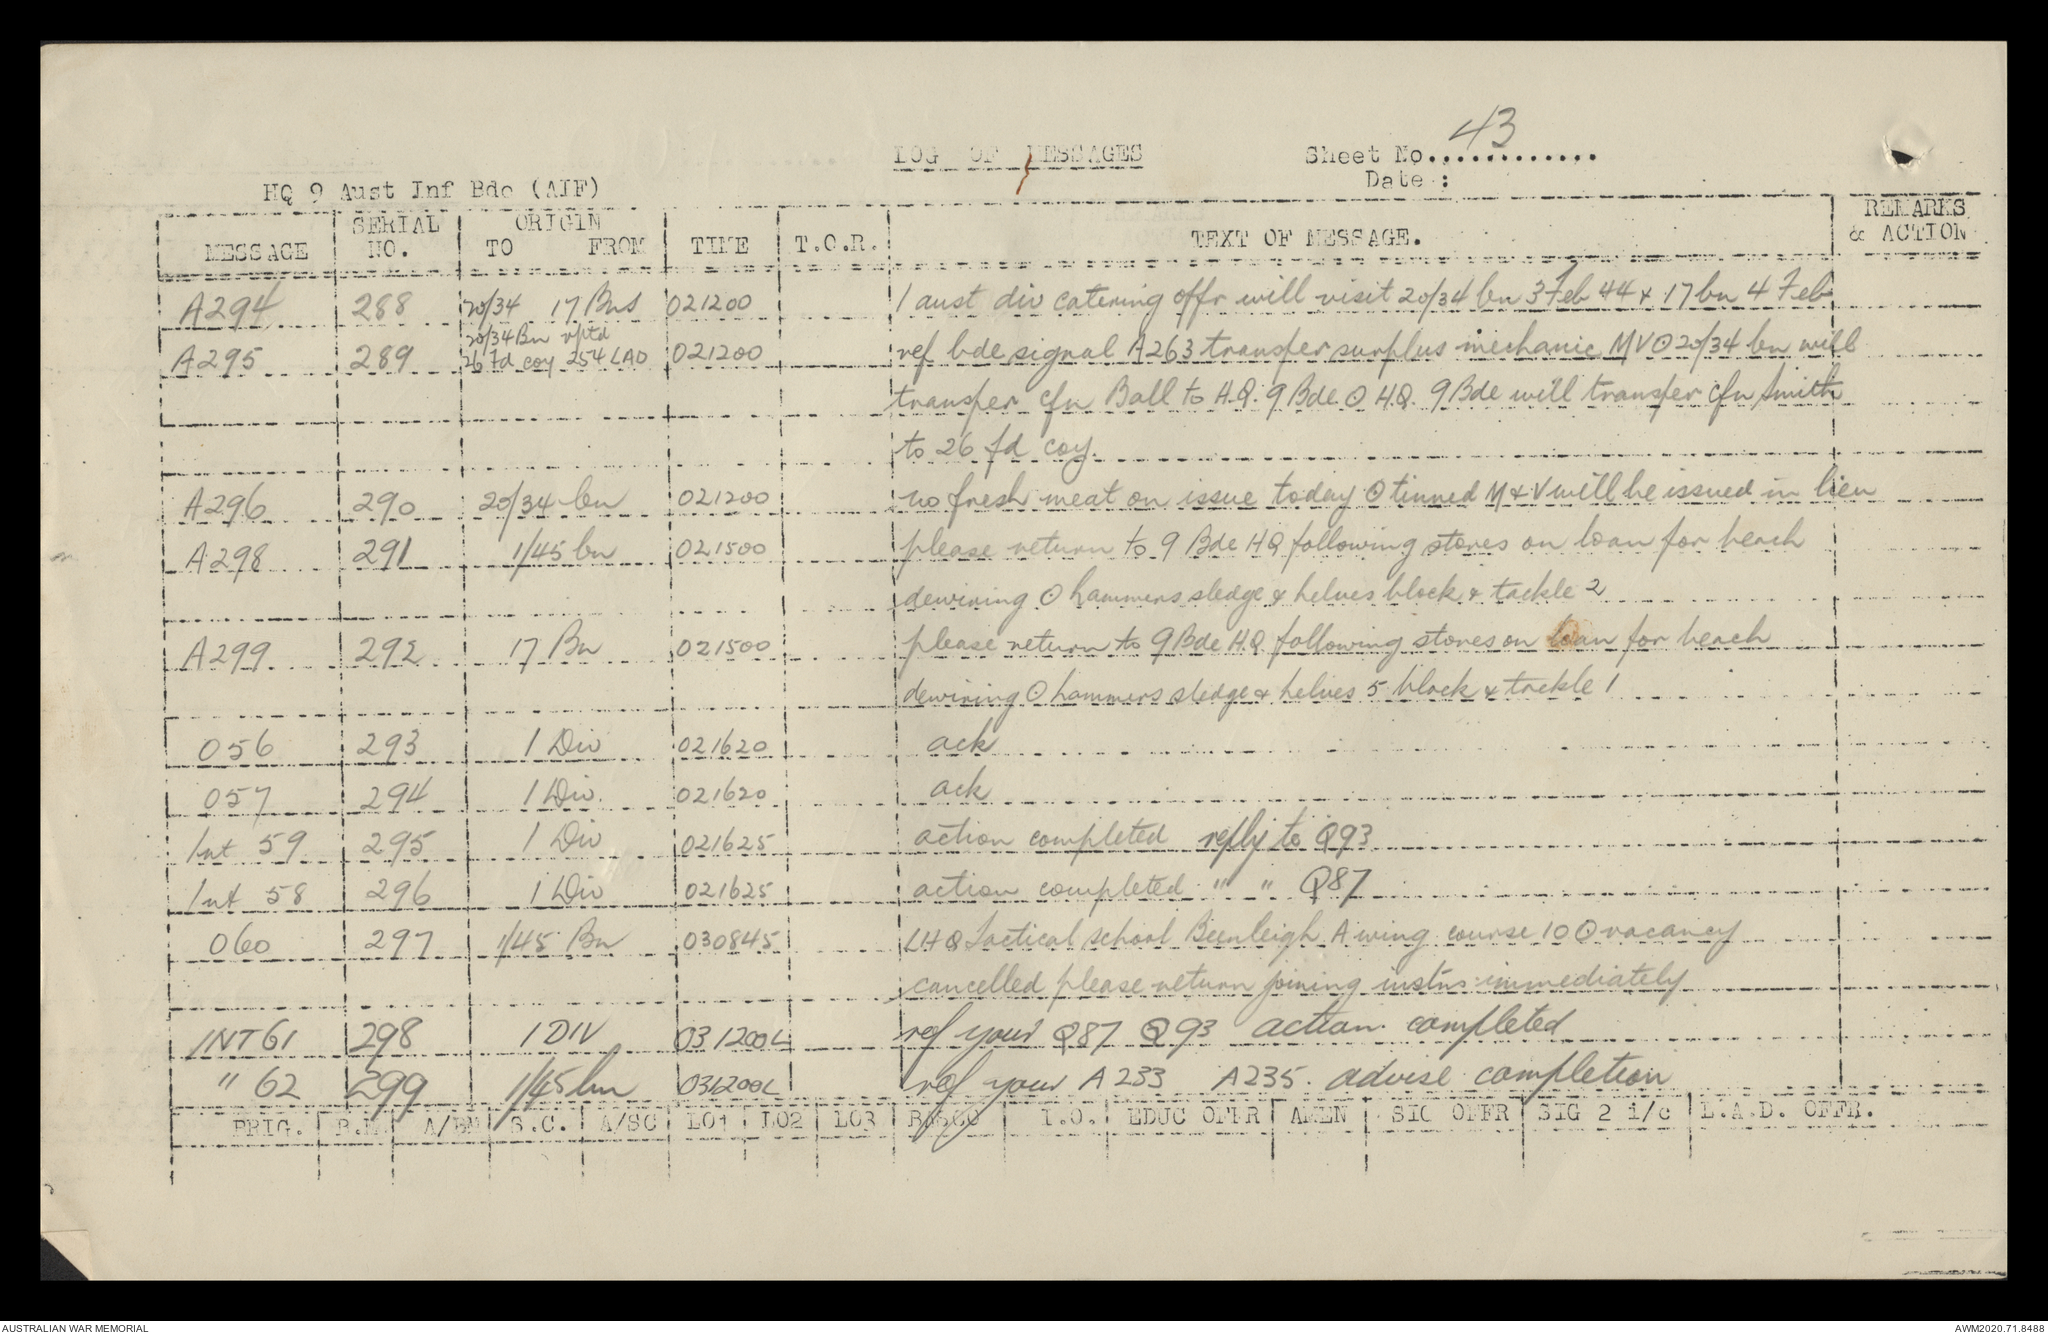 43
LOG OF MESSAGES Sheet No.............
Date :
HQ 9 Aust Inf Bde (AIF)
MESSAGE SERIAL NO. ORIGIN TO FROM TIME T.O.R. TEXT OF MESSAGE. REMARKS & ACTION
A294 288 20/34 17 Bns 021200 1 aust div catering offr will visit 20/34 bn 3 Feb 44 & 17 bn 4 Feb
20/34 Bn rptd
A295 289 26 Fd coy 254 LAD 021200 ref bde signal A263 transfer surplus mechanic MV ⊙ 20/34 bn will
transfer cfn Ball to H.Q. 9 Bde ⊙ H.Q. 9 Bde will transfer cfn Smith
to 26 fd coy.
A296 290 20/34 bn 021200 no fresh meat on issue today ⊙ tinned M & V will be issued in lieu
A298 291 1/45 bn 021500 please return to 9 Bde HQ following stores on loan for beach
dewiring ⊙ hammers sledge & helves block & tackle 2
A299 292 17 Bn 021500 please return to 9 Bde H.Q following stores on loan for beach
dewiring ⊙ hammers sledge & helves 5 block & tackle 1
056 293 1 Div 021620 ack
057 294 1 Div. 021620 ack
Int 59 295 1 Div 021625 action completed reply to Q93
Int 58 296 1 Div 021625 action completed " " Q87
060 297 1/45 Bn 030845 LHQ Tactical school Beenleigh A wing course 10 ⊙ vacancy
cancelled please return joining instns immediately
INT 61 298 1 DIV 031200L ref your Q87 Q93 action completed
" 62 299 1/45 bn 031200L ref your A233 A235. advise completion
BRIG. B.M. A/BM S.C. A/SC LO1 LO2 LO3 I.O. EDUC OFFR AMEN SIG OFFR SIG 2 i/c L.A.D. OFFR.
AUSTRALIAN WAR MEMORIAL AWM2020.71.8488